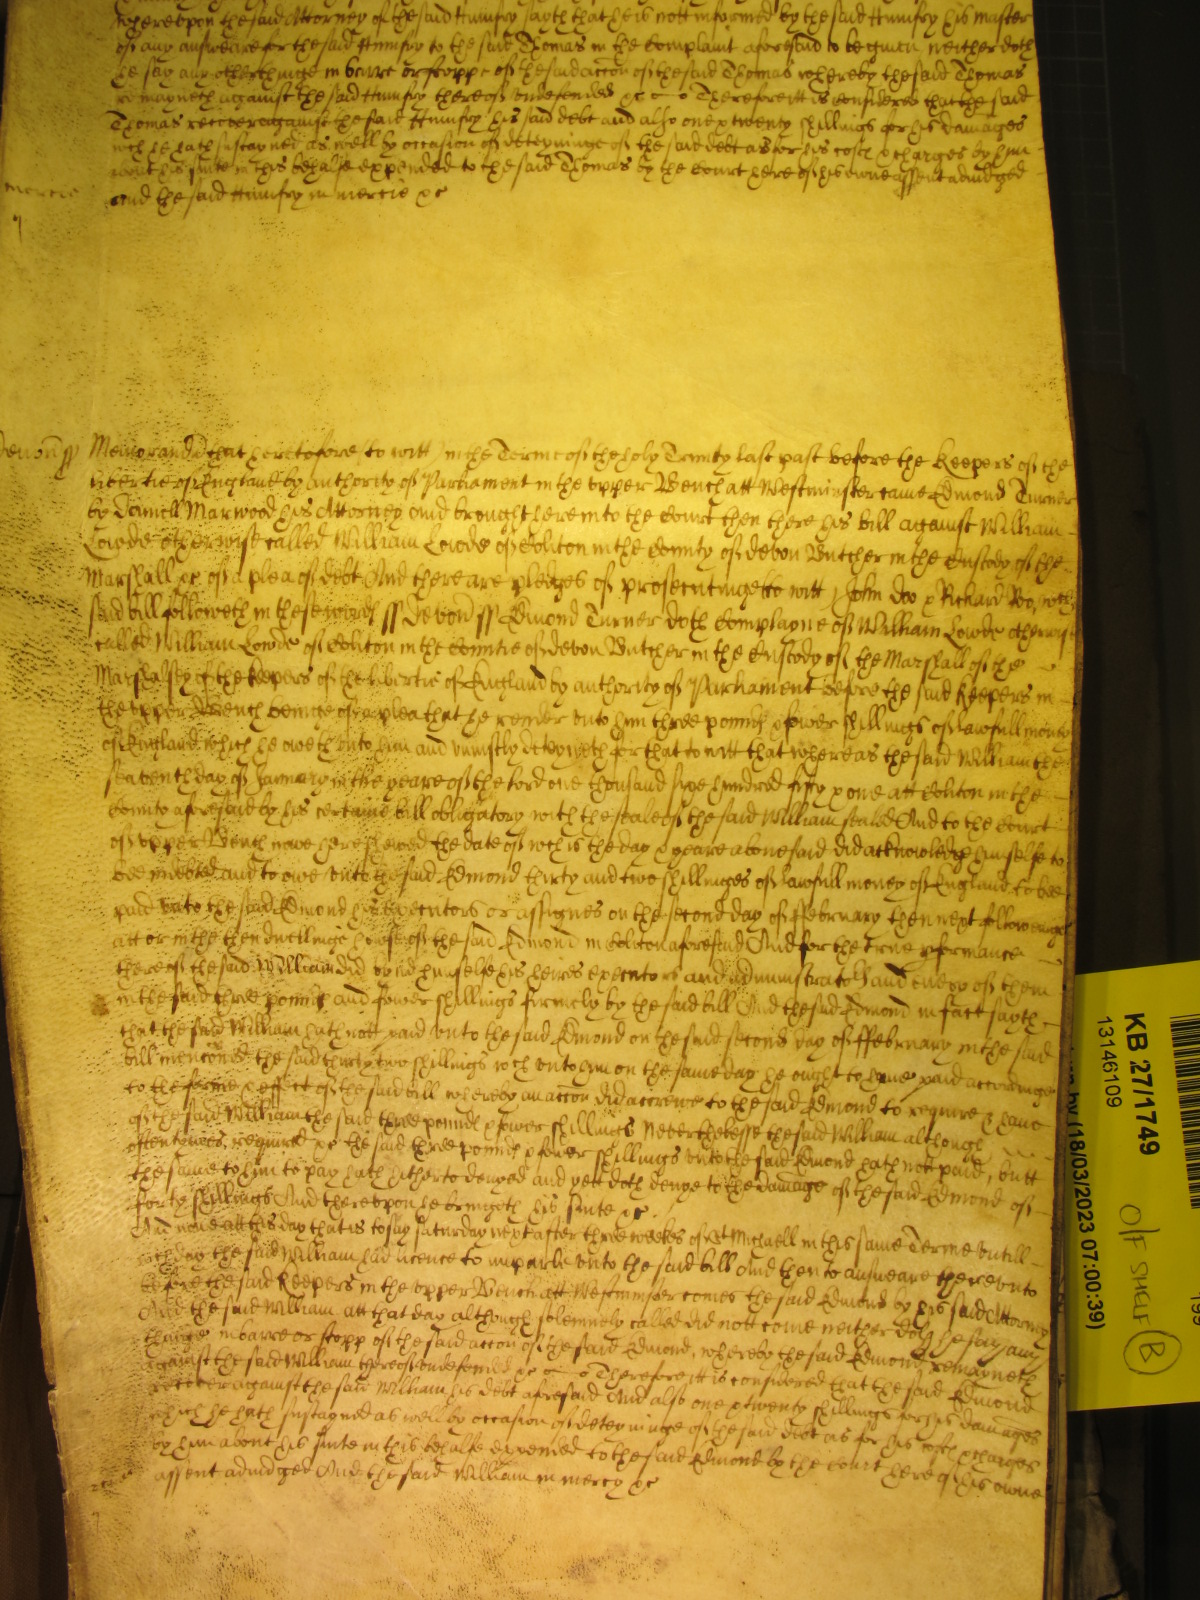 whereupon the said Attorney of the said Humfry sayth that he is nott informed by the said Humfry his master
of any answeare for the said Humfry to the said Thomas in the Complaint aforesaid to be given neither doth
he say any other thinge in barre or stoppe of the said accon of the said Thomas whereby the said Thomas
remayneth against the said Humfry thereof undefended &c Therefore itt is considered that the said
Thomas recover against the said Humfry his said debt and also one & twenty shillings for his damages
wch he hath sustayned as well by occasion of deteyninge of the said debt as for his costs & charges by him
about his suite in this behalfe expended to the said Thomas by the Court here of his owne assent adiudged
mercie
and the said Humfry in mercie &c
Devon ss
Memorand that heretofore to witt in the Terme of the holy Trinity last past before the Keepers of the
libertie of England by authority of Parliament in the upper Bench att Westminster came Edmond Turner
by Daniell Marwood his Attorney and brought here into the Court then there his bill against William
Lowde otherwise called William Lowde of Coliton in the County of Devon Butcher in the Custody of the
Marshall &c of a plea of debt And there are pledges of prosecutinge to witt John Doo & Richard Roo wch
said bill followeth in these words ss Devon ss Edmond Turner doth Complayne of William Lowde otherwise
called William Lowde of Coliton in the Countie of Devon Butcher in the Custody of the Marshall of the
Marshalsey of the Keepers of the libertie of England by authority of Parliament before the said Keepers in
the upper Bench beinge of a plea that he render unto him three pounds & fower shillings of lawfull money
of England which he oweth unto him and uniustly deteyneth for that to witt that whereas the said William the
seaventh day of January in the yeare of the lord one thousand sixe hundred fifty & one att Coliton in the
County aforesaid by his certaine bill obligatory with the seale of the said William sealed And to the Court
of upper Bench nowe here shewed the date of wch is the day & yeare abovesaid did acknowledge himselfe to
bee indebted and to owe unto the said Edmond thirty and two shillinges of lawfull money of England to bee
paid unto the said Edmond his executors or assignes on the second day of ffebruary then next followeinge
att or in the then dwellinge howse of the said Edmond in Coliton aforesaid And for the true pformance
thereof the said William did bynd himselfe his heires executors and administrators and every of them
in the said three pounds and fower shillings firmely by the said bill And the said Edmond in fact sayth
that the said William hath nott paid unto the said Edmond on the said second day of ffebruary in the said
bill menconed the said thirty two shillings wch unto him on the same day he ought to have paid accordinge
to the forme & effect of the said bill whereby an accon did accrewe to the said Edmond to require & have
of the said William the said three pounds & fower shillings Neverthelesse the said William although
oftentimes required &c the said three pounds & fower shillings unto the said Edmond hath nott paid, butt
the same to him to pay hath hitherto denyed and yett doth denye to the damage of the said Edmond of
forty shillings And thereupon he bringeth his suite &c
And nowe att this day that is to say Saturday next after three weekes of St Michaell in this same Terme untill
wch day the said William had licence to imparle unto the said bill And then to answeare thereunto
before the said Keepers in the upper Bench att Westminster comes the said Edmond by his said Attorney
And the said William att that day although solemnely called did nott come neither doth he say any
thinge in barre or stopp of the said accon of the said Edmond, whereby the said Edmond remayneth
against the said William thereof undefended &c Therefore itt is considered that the said Edmond
recover against the said William his debt aforesaid And also one & twenty shillings for his damages
which he hath sustayned as well by occasion of deteyninge of the said debt as for his costs & charges
by him about his suite in this behalfe expended to the said Edmond by the Court here of his owne
assent adiudged And the said William in mercy &c
KB 27/1749
13146109
(18/03/2023 07:00:39)
O/F SHELF B